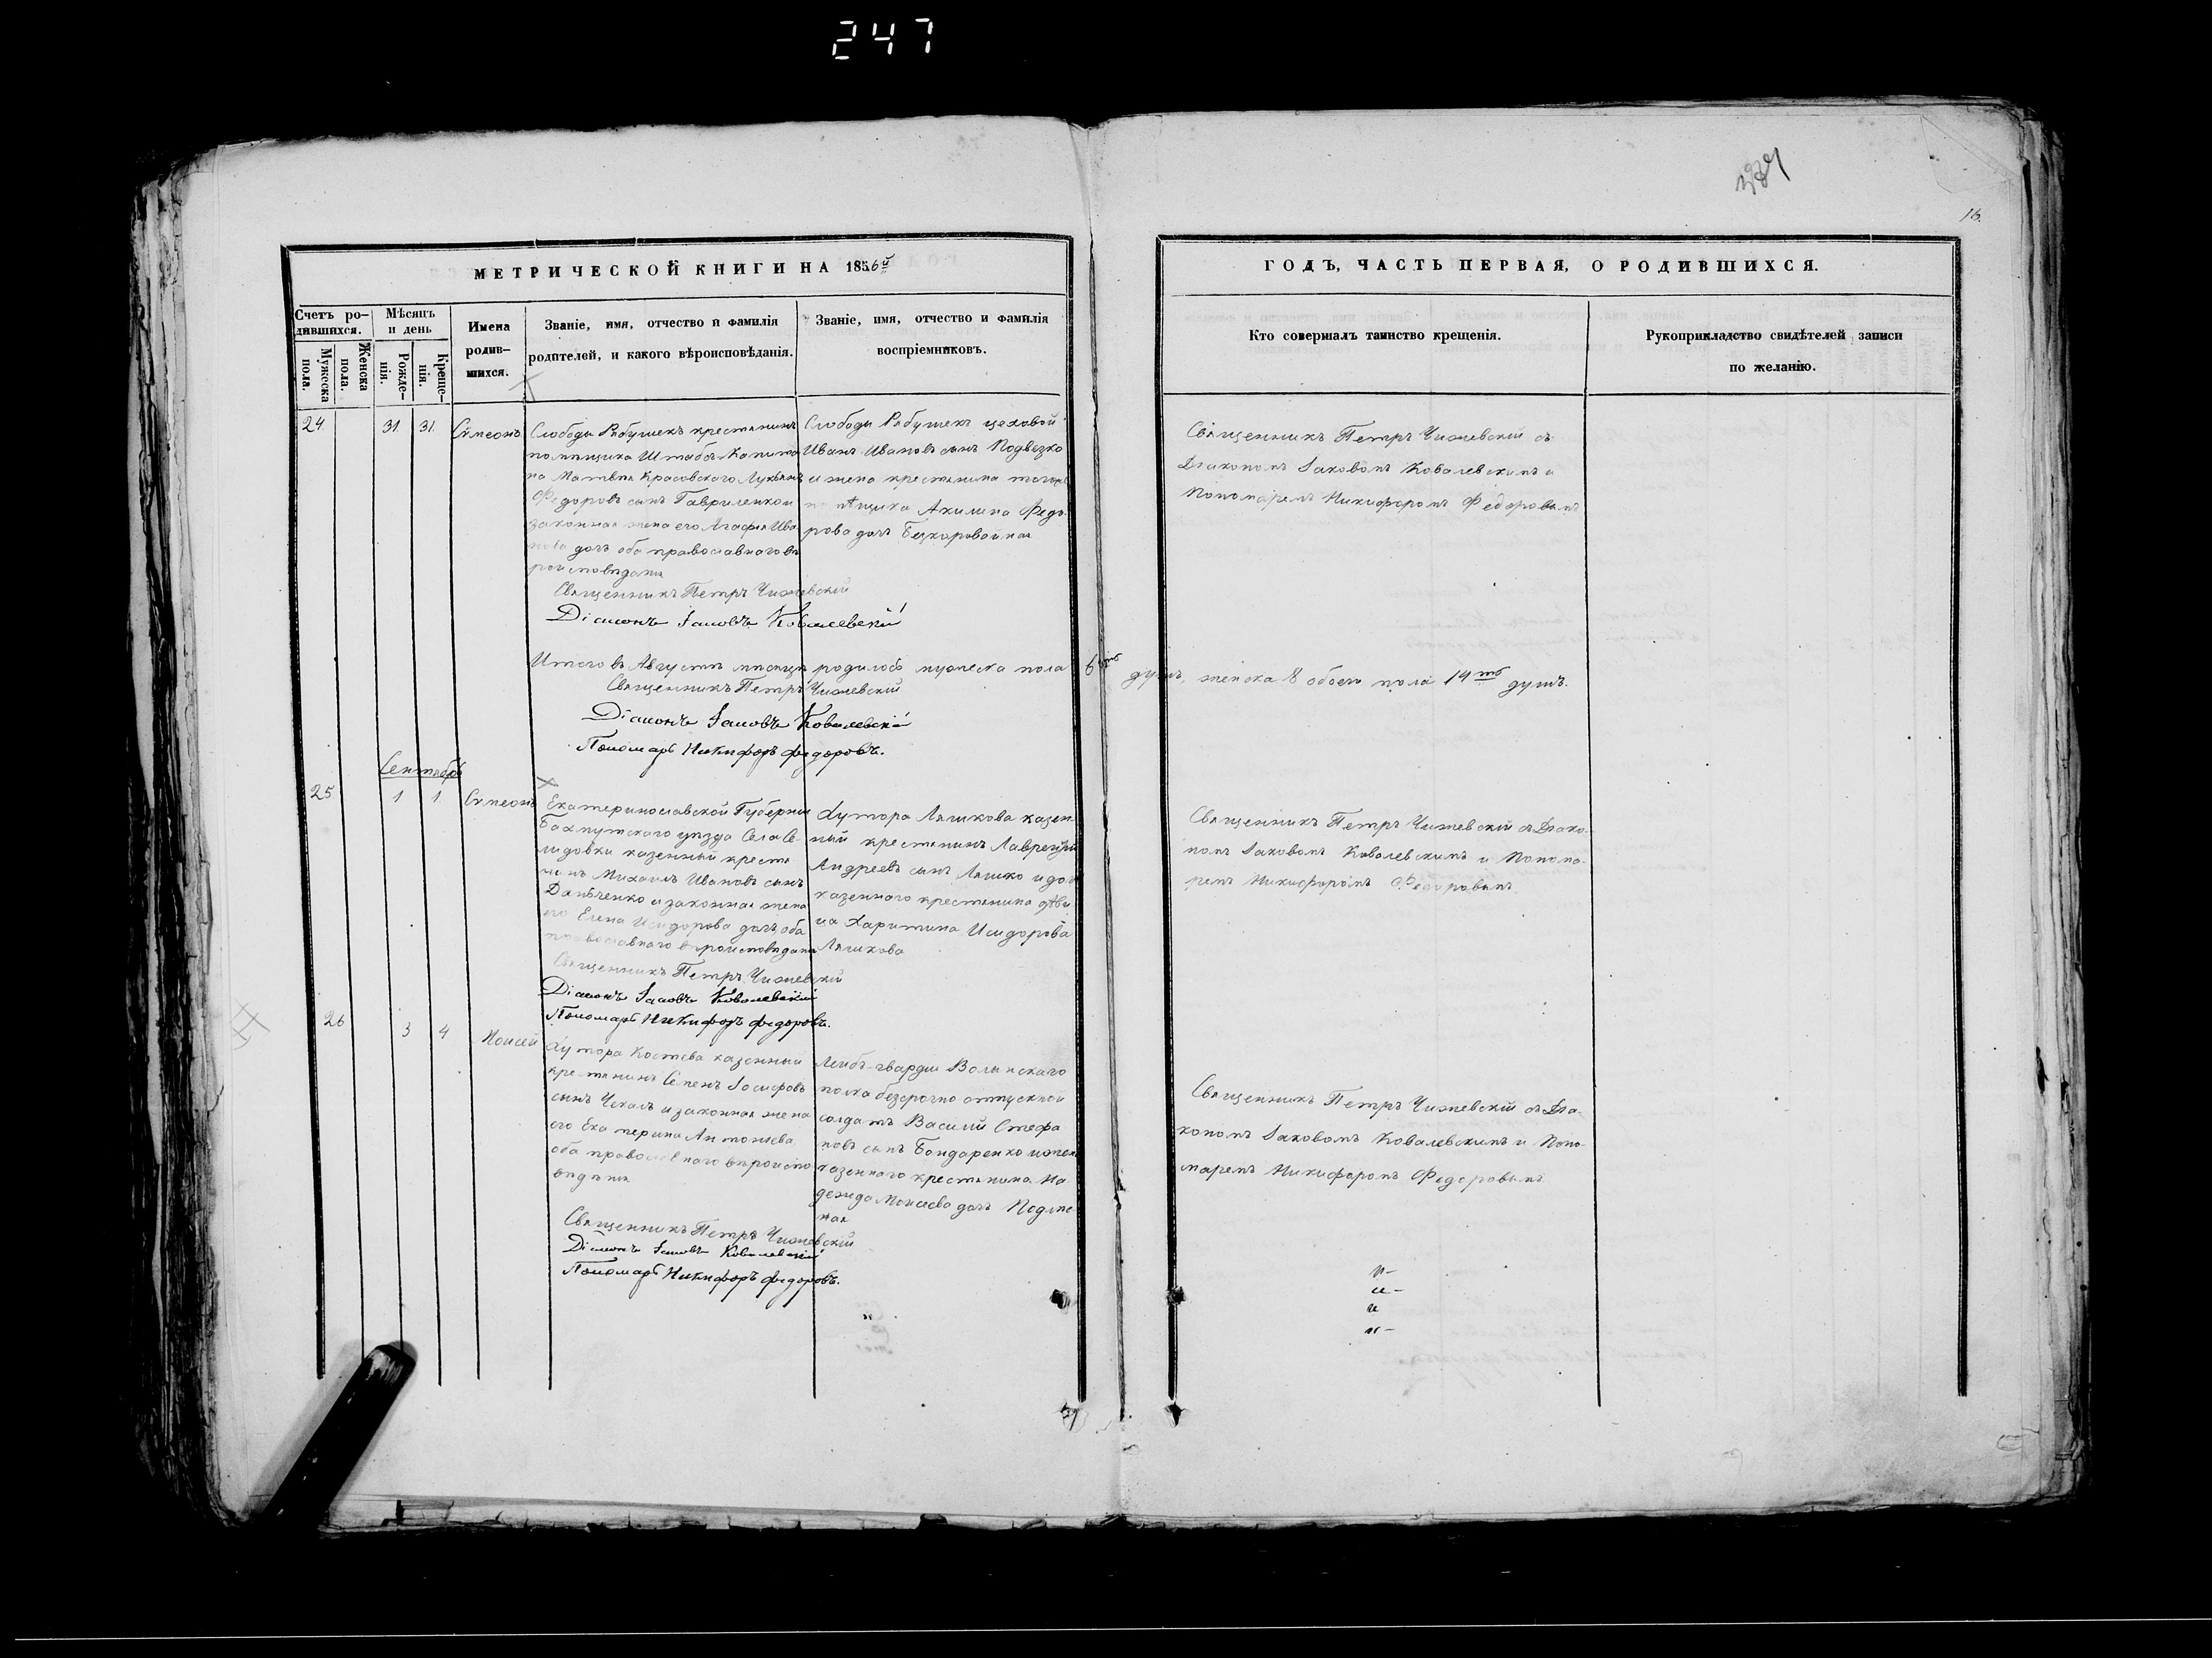 247
16.
МЕТРИЧЕСКОЙ КНИГИ НА 1856й
ГОДЪ, ЧАСТЬ ПЕРВАЯ, О РОДИВШИХСЯ.
Счетъ ро-
дившихся.
Мужеска
пола.
Женска
пола.
Мѣсяцъ
и день
Рожде-
нія.
Креще-
нія.
Имена
родив-
шихся.
Званіе, имя, отчество и фамилія
родителей, и какого вѣроисповѣданія.
Званіе, имя, отчество и фамилія
воспріемниковъ.
Кто совершалъ таинство крещенія.
Рукоприкладство свидѣтелей записи
по желанію.
24 31 31 Сѵмеонъ
Слободы Рябушекъ крестьянинъ
помѣщика Штабсъ-Капита
на Матвѣя Красовского Лукьянъ
Федоровъ сынъ Гавриленко и
законная жена его Агафія Ива
нова дочь оба православнаго вѣ
роисповѣданія
Слободы Рябушекъ цеховой
Иванъ Ивановъ сынъ Подвезко
и жена крестьянина
Акилина Федо
рова дочь Безкоровойная
Священникъ Петръ Чижевскій съ
Діакономъ Іаковомъ Ковалевскимъ и
Пономаремъ Никифоромъ Федоровымъ
Священникъ Петръ Чижевскій
Діаконъ Іаковъ Ковалевскій
Итого въ Августѣ мѣсяцѣ родилось мужеска пола 6ть душъ, женска 8 обоего пола 14ть душъ.
Священникъ Петръ Чижевскій
Діаконъ Іаковъ Ковалевскій
Пономарь Никифоръ Федоровъ.
Сентябрь
25 1 1 Сѵмеонъ
Екатеринославской Губерніи
Бахмутскаго уѣзда Села Се-
лидовки казенный кресть
янинъ Михаилъ Ивановъ сынъ
и законная жена
его Елена Исидорова дочь оба
православнаго вѣроисповѣданія
Хутора Ляшкова казен-
ный крестьянинъ Лаврентій
Андреевъ сынъ Ляшко и доч
казенного крестьянина дѣви
ца Харитина Исидорова
Ляшкова
Священникъ Петръ Чижевскій съ Діако-
номъ Іаковомъ Ковалевскимъ и Понома-
ремъ Никифоромъ Федоровымъ
Священникъ Петръ Чижевскій
Діаконъ Іаковъ Ковалевскій
Пономарь Никифоръ Федоровъ.
26 3 4 Моисей
Хутора Костева казенный
крестьянинъ Семенъ Іосифовъ
сынъ Чекалъ и законная жена
его Екатерина Антоніева
оба православнаго вѣроиспо
вѣданія
Лейбъ-гвардіи Волынскаго
полка безсрочно отпускной
солдатъ Василій Стефа
новъ сынъ Бондаренко и жена
казенного крестьянина На
дежда Моисеева дочь
ная
Священникъ Петръ Чижевскій съ Діа-
кономъ Іаковомъ Ковалевскимъ и Поно-
маремъ Никифоромъ Федоровымъ
Священникъ Петръ Чижевскій
Діаконъ Іаковъ Ковалевскій
Пономарь Никифоръ Федоровъ.